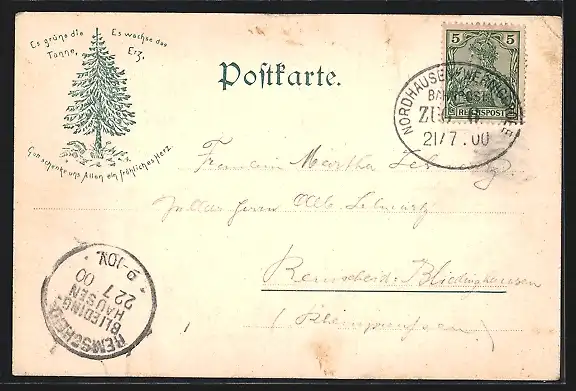 Es grüne die Tanne,
Es wachse das Erz,
Gott schenke uns Allen ein fröhliches Herz.
Postkarte.
5 5
REICHSPOST
NORDHAUSEN-WERNIGERODE
BAHNPOST
ZUG
21/7.00
Fräulein Martha Schwartz
Herrn Alb. Schwartz
Remscheid-Bliedinghausen
(Rheinpreussen)
REMSCHEID-
BLIEDING-
HAUSEN
22 7 00
9-10V.